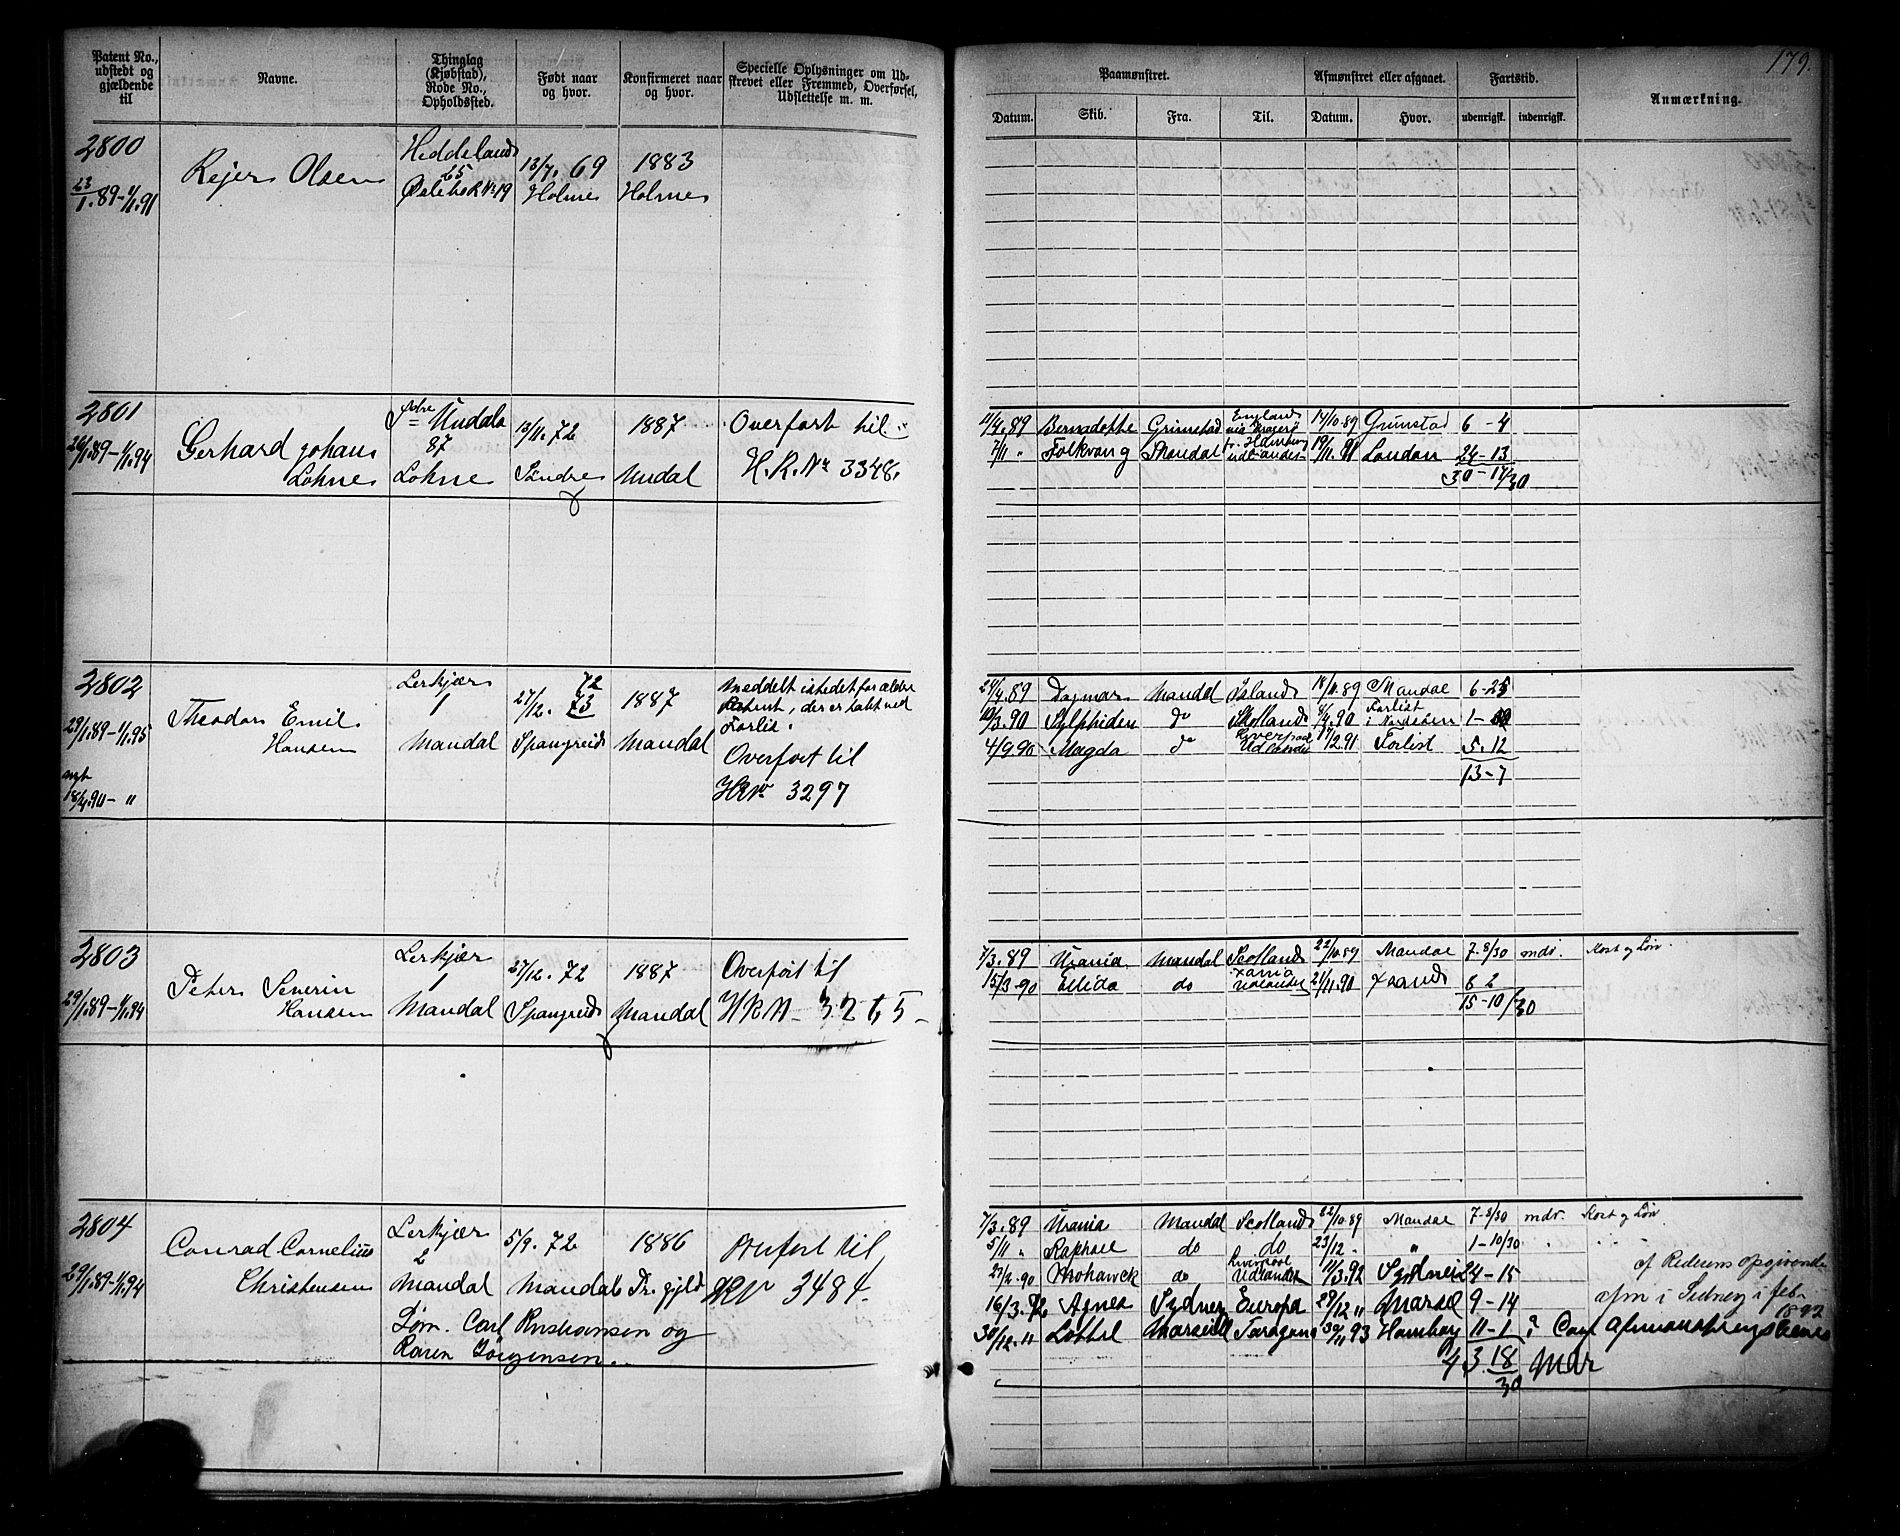 179.
Patent No., udstedt og gjældende til
Navne.
Thinglag (Kjøbstad), Rode No., Opholdssted.
Født naar og hvor.
Konfirmeret naar og hvor.
Specielle Oplysninger om Udskrevet eller Fremmed, Overførsel, Udslettelse m. m.
Paamønstret.
Afmønstret eller afgaaet.
Fartstid.
Anmærkning.
Datum. Skib. Fra. Til. Datum. Hvor. udenrigsk. indenrigsk.
2800
23/1.89-1/1.91
Rejer Olsen
Heddeland
65
13/7. 69
Holme
1883
Holme
2801
26/1.89-1/1.94
Gerhard Johan
Løhne
Undals
87
Løhne
13/11. 72
Søndre
1887
Undal
Overført til
H.R.Nr 3348.
11/4.89 Bernadotte Grimstad England 14/10.89 Grimstad 6 - 4
7/11 " Folkvang Mandal 19/11.91 London 24 - 13
30 - 17/30
2802
29/1.89-1/1.95
18/4.90- "
Theodor Emil
Hansen
Lerkjær
1
Mandal
72
27/12. 73
Spangreid
1887
Mandal
Meddelt istedet for ældre
Patent, der er tabt ved
Forlis.
Overført til
HRNr 3297
24/4.89 Dagmar Mandal Island 18/10.89 Mandal 6-25
10/3.90 Sylphiden do Skotland 8/4.90 Forlist i Nordsøen 1-
4/9 90 Magda do Liverpool Udlandet 17/2 91 Forlist 5. 12
13-7
2803
29/1.89-1/1.94
Peter Severin
Hansen
Lerkjær
1
Mandal
27/12. 72
Spangreid
1887
Mandal
Overført til
HRN- 3265-
7/3.89 Urania Mandal Scotland 22/10.89 Mandal 7-8/30 mdr. Kost og Løn.
15/3-90 Elida do Udlandet 21/11.90 8 2
15-10/30
2804
29/1.89-1/1.94
Conrad Cornelius
Christensen
Lerkjær
2
Mandal
5/9. 72
Mandal
1886
Tr. gjld
Overført til
HRN 3484.
Søn. Carl Kristiansen og
Karen Jørgensen.
7/3.89 Urania Mandal Scotland 22/10.89 Mandal 7-8/30 mdr. Kost og Løn.
5/11 " Raphael do do 23/12 . " 1-10/30 "
27/2.90 Mohawck do Liverpool Udlandet 11/3.92 Sydney 24-15 af Rederens opgivende
16/3.92 Agnes Sydney Europa 29/12 " Marseil 9-14 afm i Sidney i feb. 1892
30/12." Lottel Marseill 30/11 93 Hamburg 11-1 ?
43 18/30 Mdr